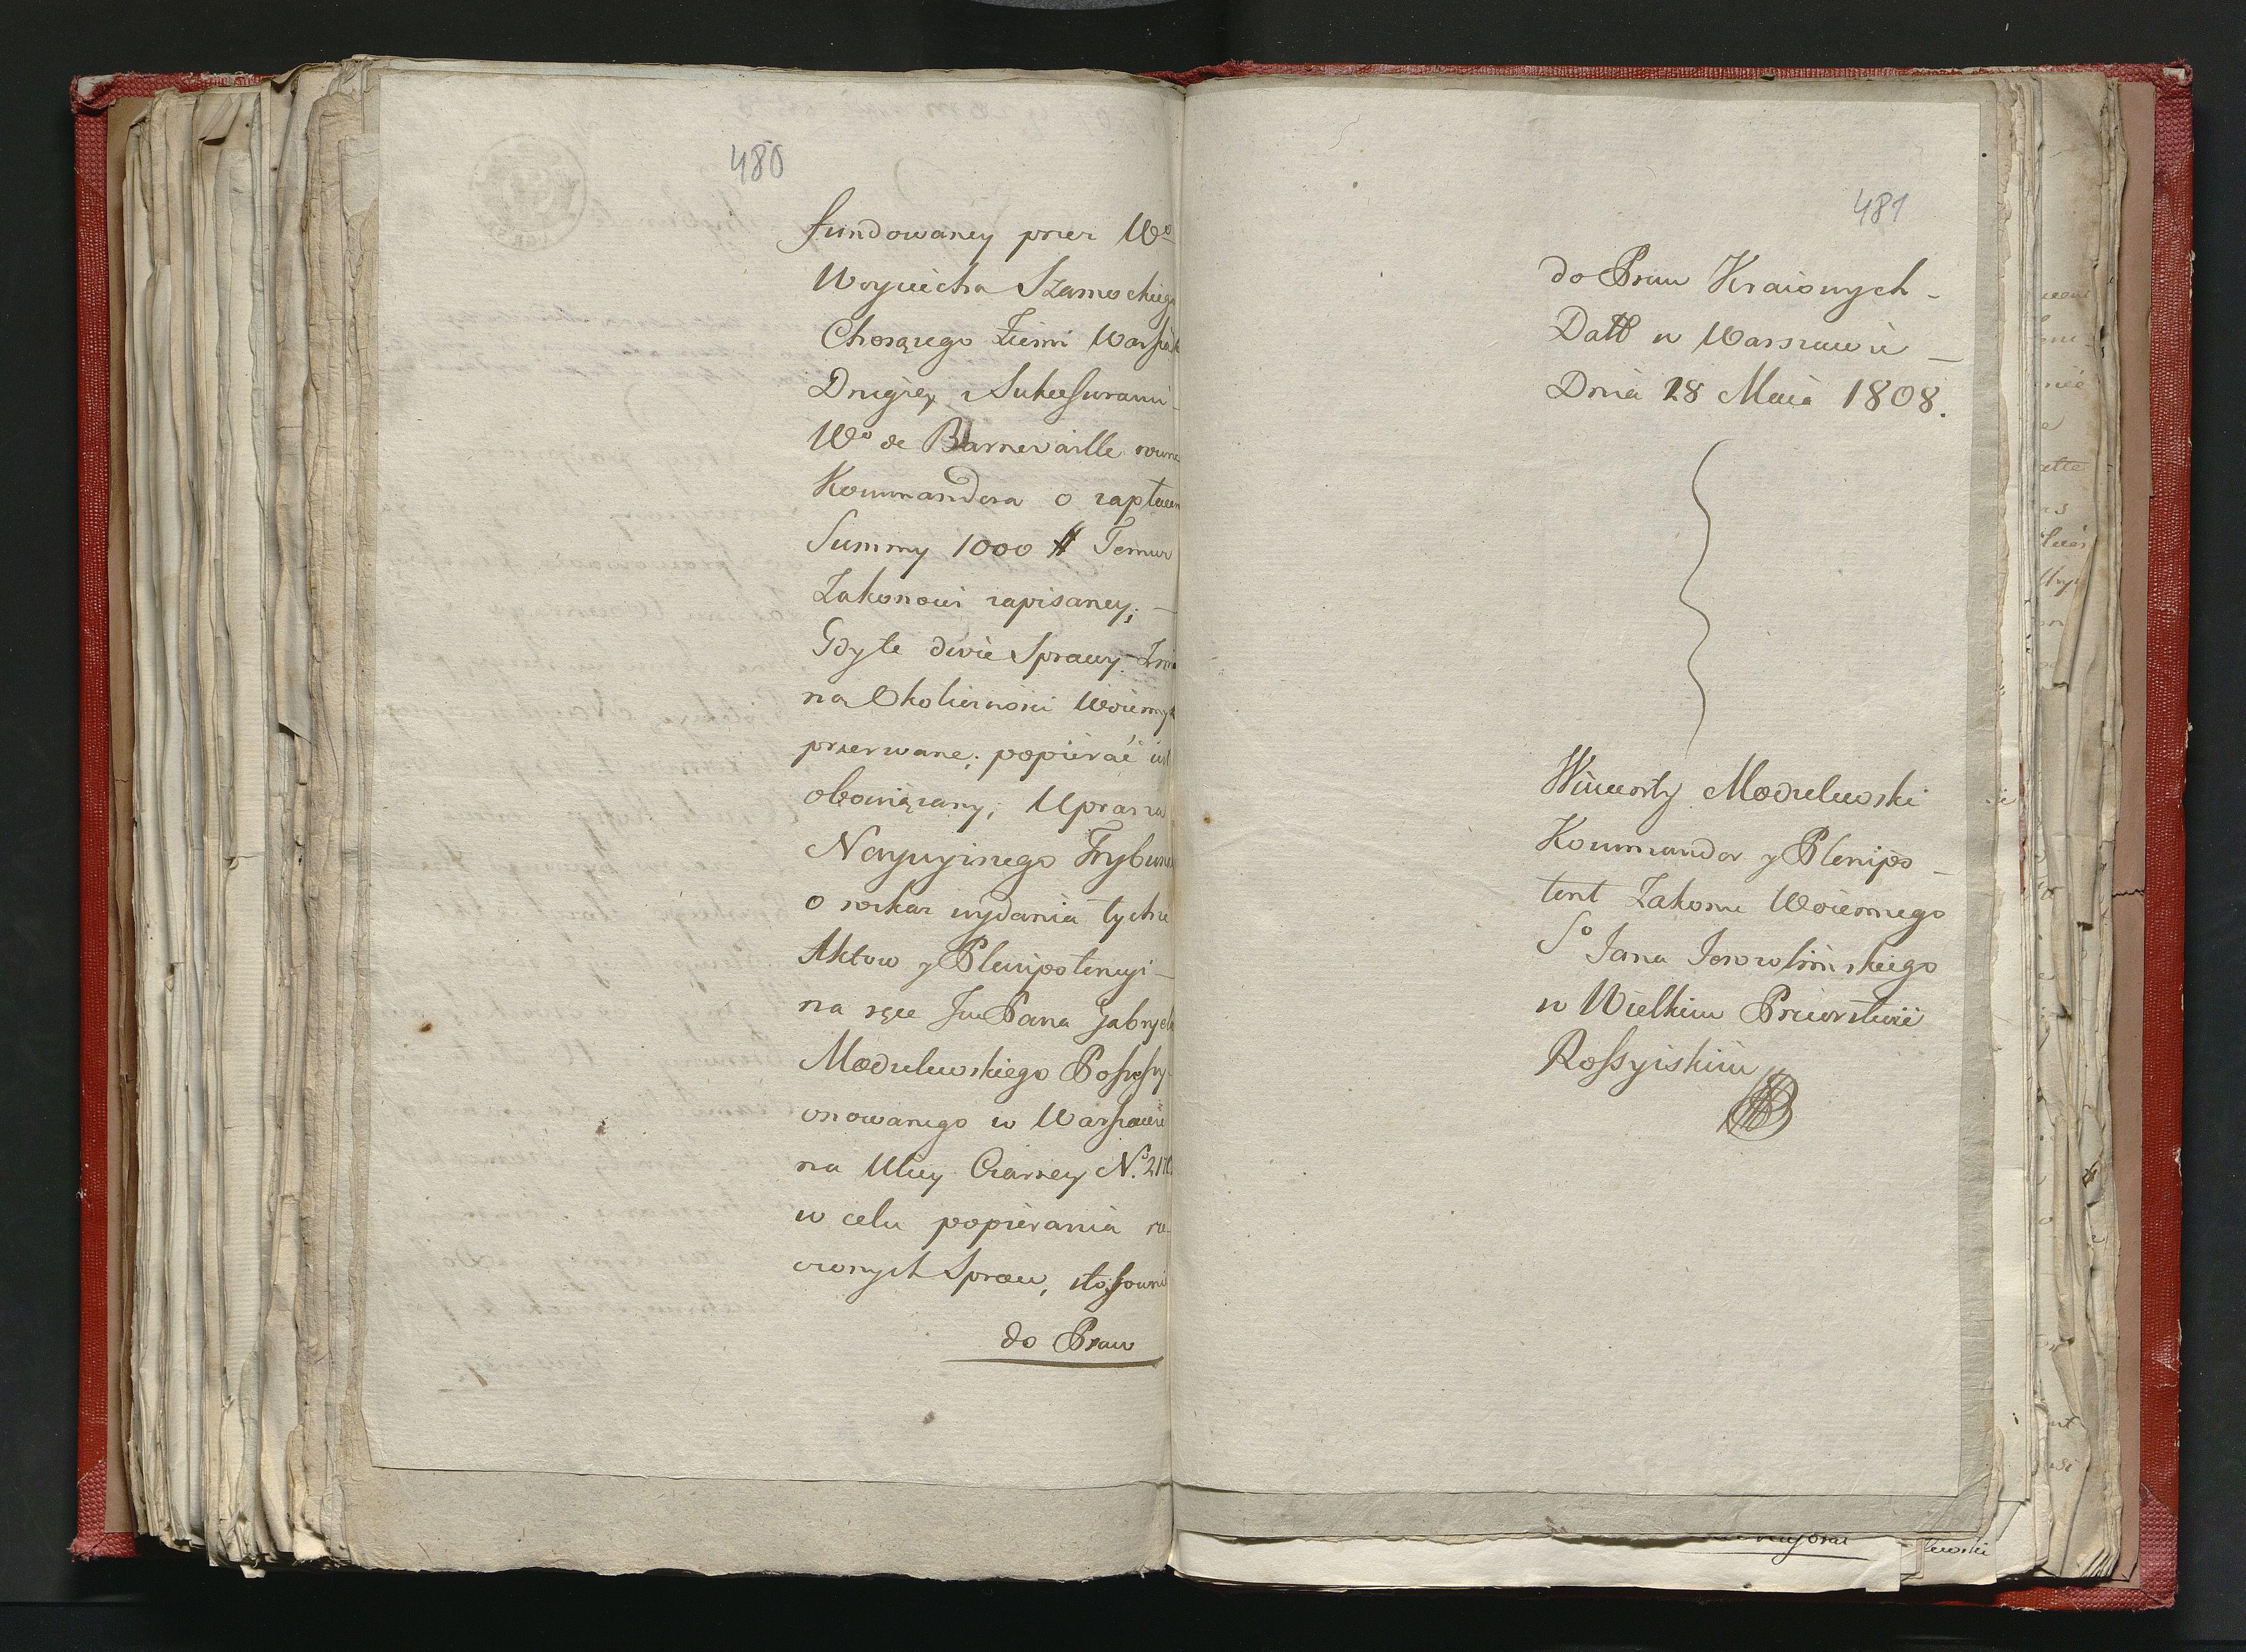 480
fundowaney przez Wº
Woyciecha Szamockiego
Chorązego Ziemi Warsza
Drugiey z Sukcessorami
Wº de Barnevaille rowne
Kommandora o zapłacen
Summy 1000 # Temuz
Zakonowi zapisaney; —
Gdy te dwie Sprawy
na Okoliczności Woienny
przerwane; popiérać iest
obowiązany; Uprasza
Nayuyższego Trybuna
o rozkaz wydania tychże
Aktow y Plenipotencyi —
na ręce Jm Pana Gabryela
Modzelewskiego Possessy-
onowanego w Warszawie
na Ulicy Czarney Nº
w celu popiérania rze-
czonych Spraw, stossowni
do Praw
481
do Praw Kraiowych —
Datt w Warszawie —
Dnia 28 Maia 1808.
Wincenty Modzelewski
Kommandor y Plenipo —
tent Zakonu Woiennego
Sº Jana Jerozolimskiego
w Wielkim Przeorstwie
Rossyiskim
lewski